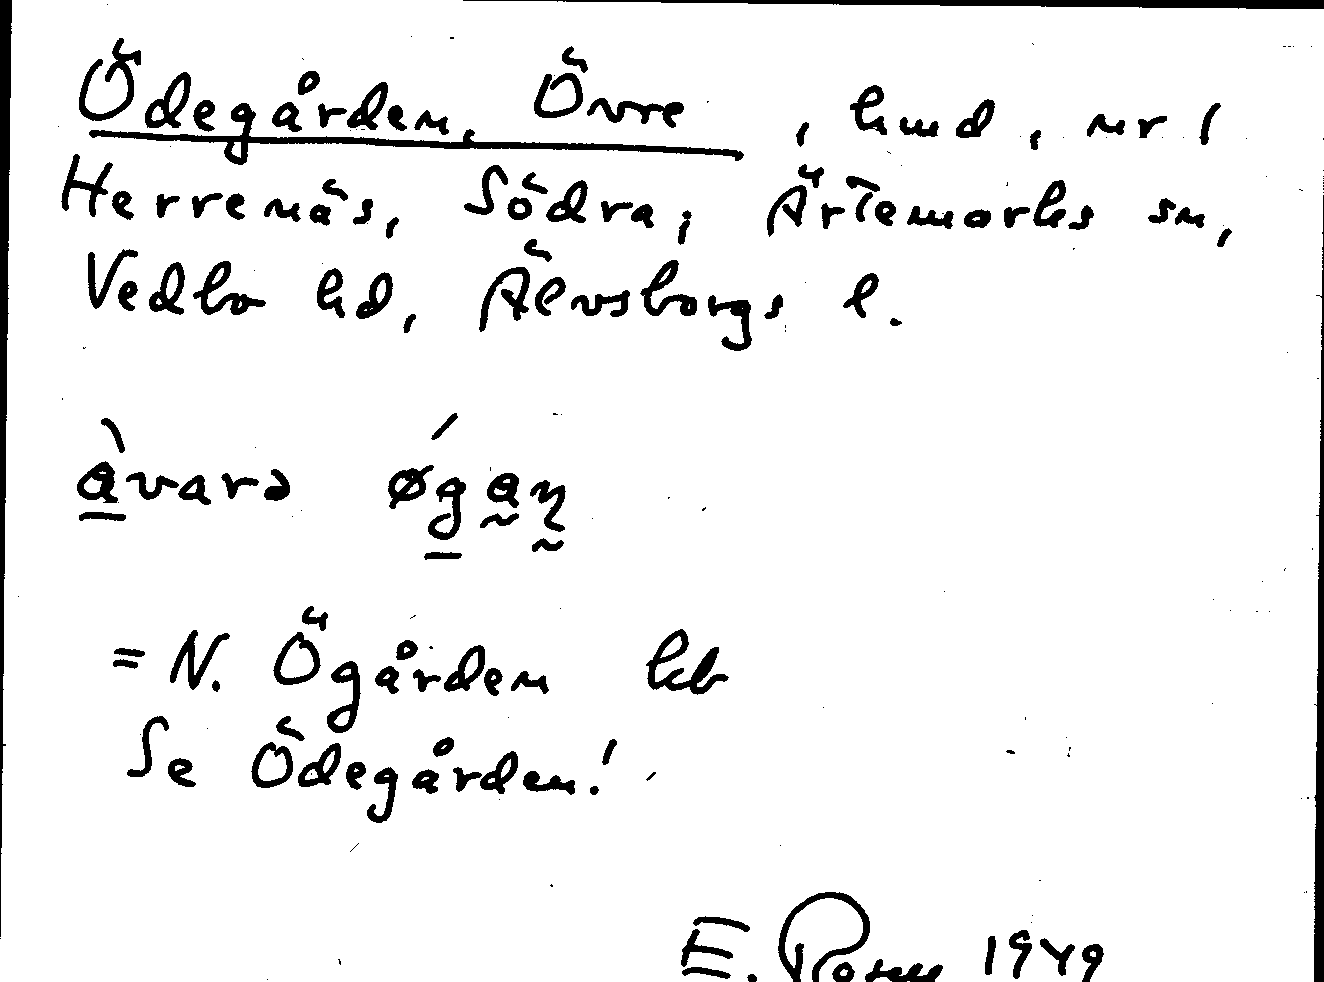 Ödegården, Övre, hmd, nr 1
Herrenäs, Södra, Ärtemarks sn,
Vedbo hd, Älvsborgs l.
= N. Ögården kb
Se Ödegården!
E. 1949